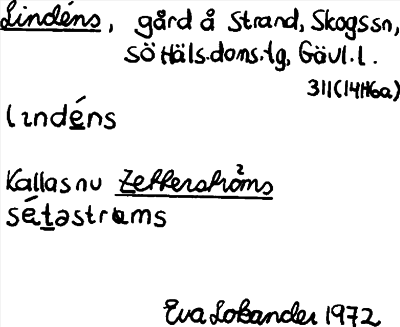 Lindéns, gård å Strand, Skogssn,
SöHäls.doms.tg, Gävl.l.
311(14H6a)
lındéns
Kallas nu Zetterströms
sétəstrɷms
Eva Lobander 1972